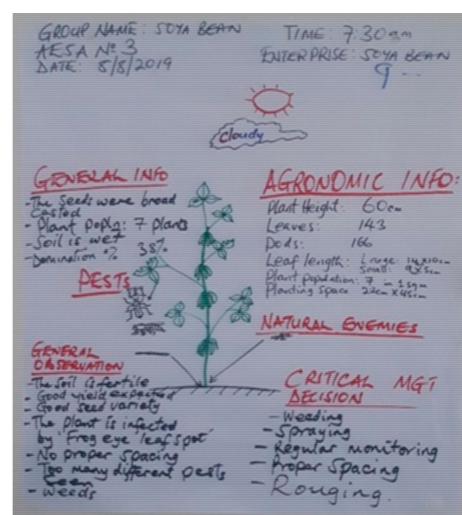 GROUP NAME: SOYA BEAN
AESA Nº 3
DATE: 8/8/2019
TIME: 7:30am
ENTERPRISE: SOYA BEAN
cloudy
GENERAL INFO
- The Seeds were broad
casted
- Plant popln: 7 plants
- Soil is wet
- Domination % 38%
PESTS
GENERAL
OBSERVATION
- The soil is fertile
- Good yield expected
- Good seed variety
- The plant is infected
by 'Frog eye leaf spot'
- No proper spacing
- Too many different pests
seen
- weeds
AGRONOMIC INFO:
Plant Height: 60cm
Leaves: 143
Pods: 166
Leaf length: Large: 14x10cm
Small: 9x5cm
Plant population: 7 in 1sqm
Planting space 22cm x 45cm
NATURAL ENEMIES
CRITICAL MGT
DECISION
- Weeding
- Spraying
- Regular monitoring
- Proper Spacing
- Rouging.